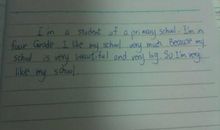 I'm a student of a primary school. I'm in
four Grade. I like my school very much. Because my
school is very beautiful and very big. So I'm very
like my school.